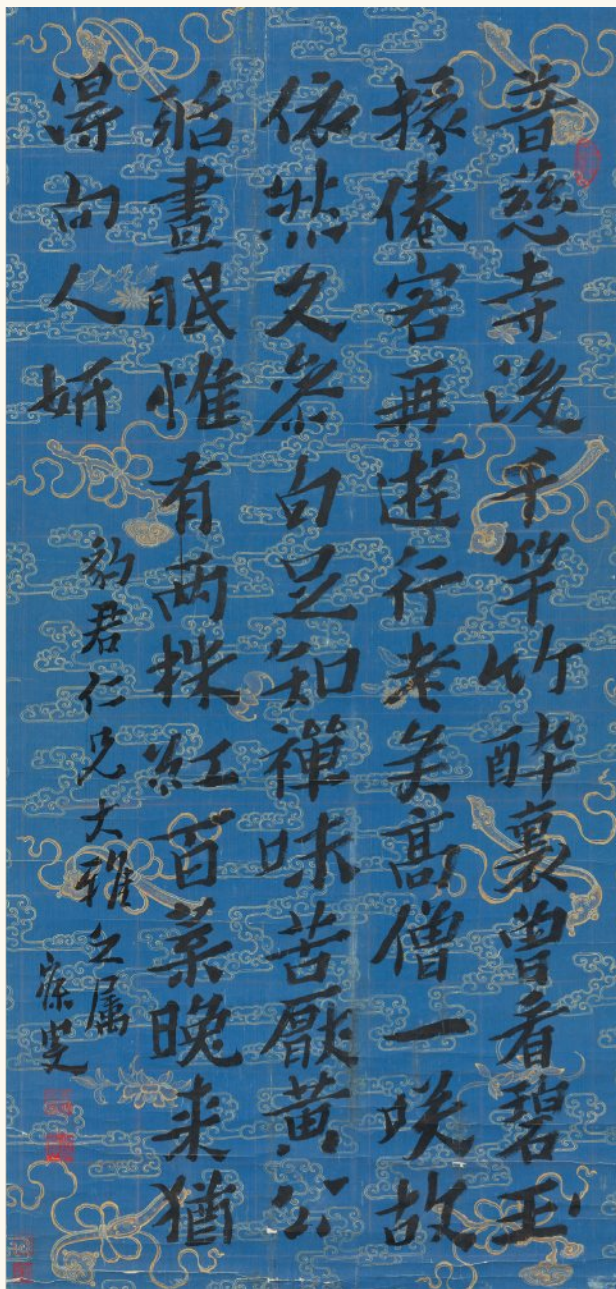 普慈寺後千竿竹醉裏曾看碧玉
椽倦客再遊行老矣高僧一笑故
依然久參白足知禪味苦厭黃公
聒晝眠惟有兩株紅百葉晚来猶
得向人妍
豹君仁兄大雅之属
寐叟